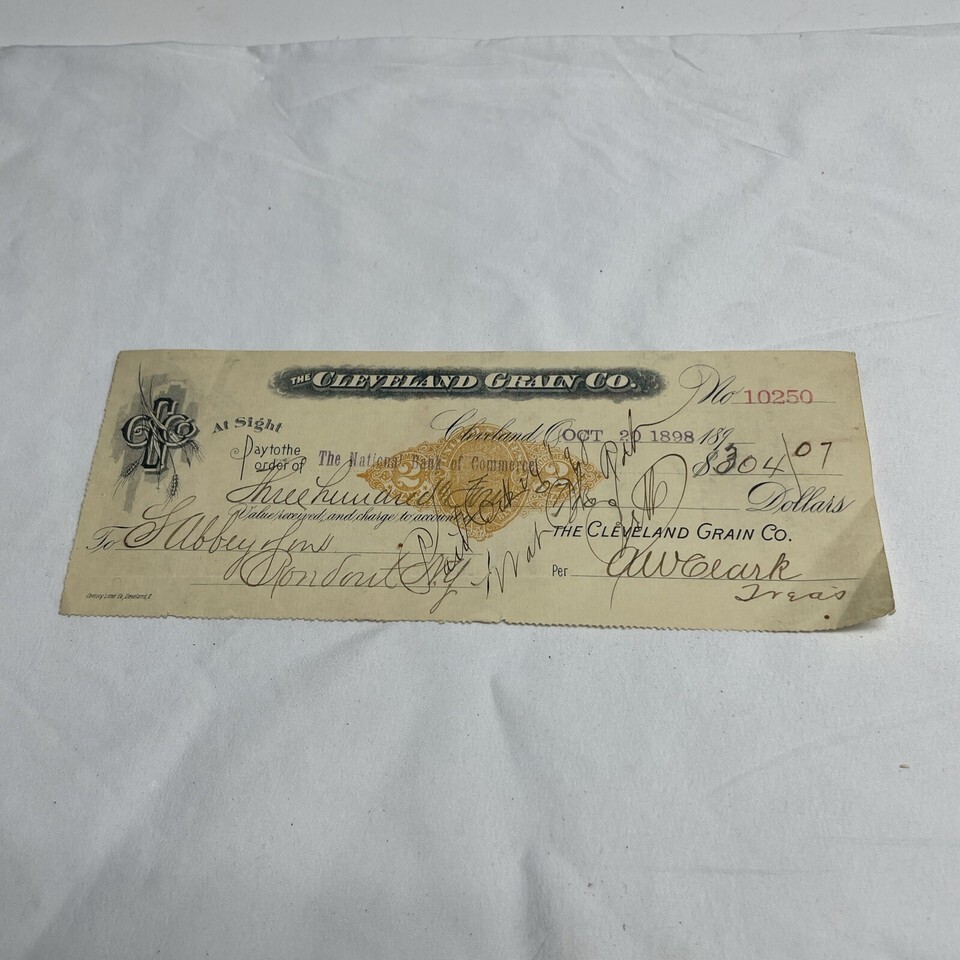 THE CLEVELAND GRAIN CO.
No 10250
CGCo
At Sight
Cleveland, O. OCT 20 1898 189
Pay to the order of The National Bank of Commerce $304/07
Three hundred & Four 07/100 Dollars
Value received and charge to account
THE CLEVELAND GRAIN CO.
To S Abbey & Sons
Rondout N.Y.
Per A W Clark
Treas
Century Litho Co, Cleveland, O
2 2